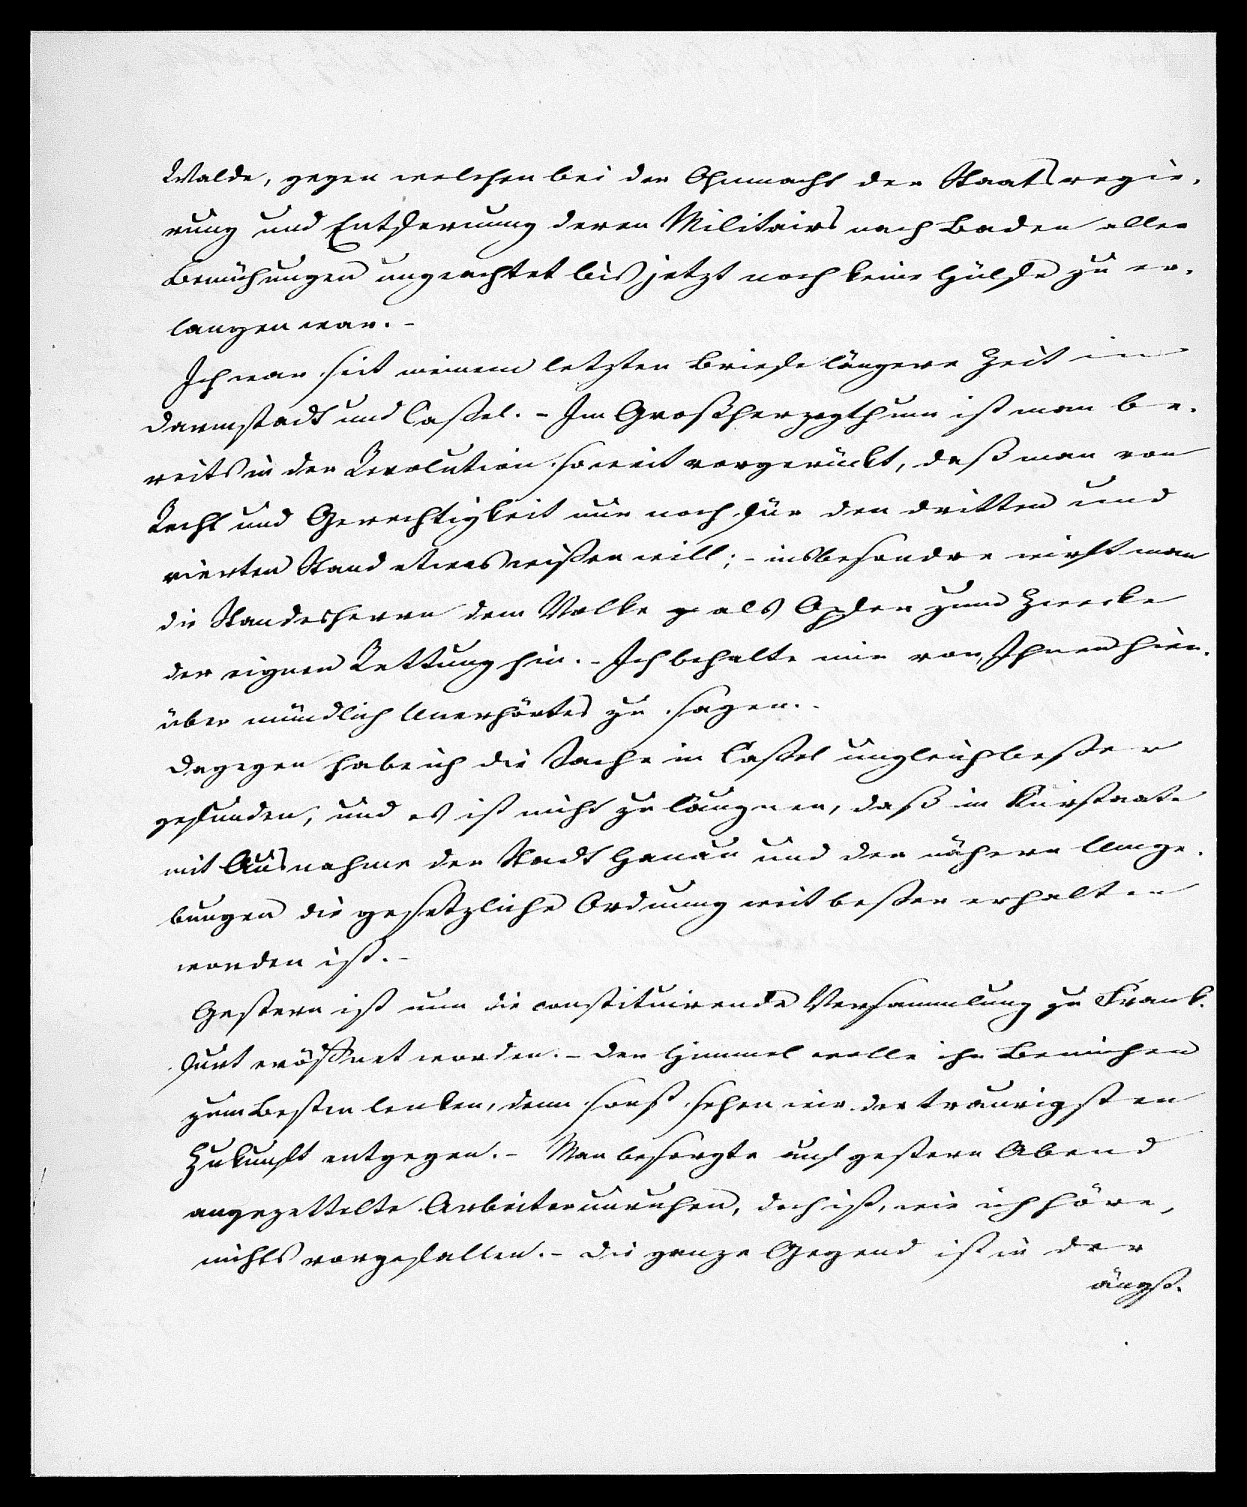 Walde, gegen welchen bei der Ohnmacht der Staatsregie-
rung und Entfernung deren Militairs nach Baden aller
Bemühungen ungeachtet bis jetzt noch keine Hülfe zu er-
langen war. -
Ich war seit meinem letzten Briefe längere Zeit in
Darmstadt und Cassel. - Im Großherzogthum ist man be-
reits in der Revolution soweit vorgerückt, daß man von
Recht und Gerechtigkeit nur noch für den dritten und
vierten Stand etwas wißen will; - insbesondre wirft man
die Standesherrn dem Volke als Opfer zum Zwecke
der eignen Rettung hin. - Ich behalte mir vor, Ihnen hier-
über mündlich Unerhörtes zu sagen. -
Dagegen habe ich die Sache in Cassel ungleich beßer
gefunden, und es ist nicht zu läugnen, daß im Kurstaate
mit Ausnahme der Stadt Hanau und der nähern Umge-
bungen die gesetzliche Ordnung weit beßer erhalten
worden ist. -
Gestern ist nun die constituirende Versammlung zu Frank-
furt eröffnet worden. - Der Himmel wolle ihr Bemühen
zum Besten lenken, denn sonst sehen wir der traurigsten
Zukunft entgegen. - Man besorgte auf gestern Abend
angezettelte Arbeiterunruhen, doch ist, wie ich höre,
nichts vorgefallen. - Die ganze Gegend ist in der
ängst-